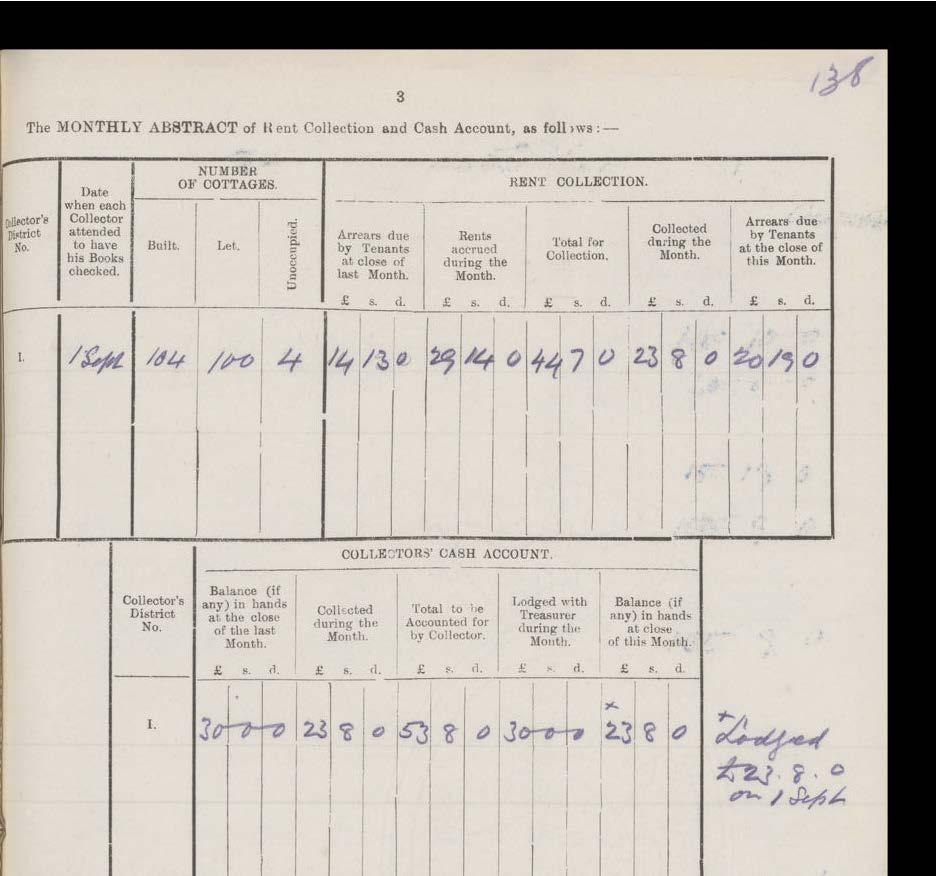 138
3
The MONTHLY ABSTRACT of Rent Collection and Cash Account, as follows :—
Collector's District No.
Date when each Collector attended to have his Books checked.
NUMBER OF COTTAGES.
Built.
Let.
Unoccupied.
RENT COLLECTION.
Arrears due by Tenants at close of last Month.
Rents accrued during the Month.
Total for Collection.
Collected during the Month.
Arrears due by Tenants at the close of this Month.
£ s. d. £ s. d. £ s. d. £ s. d. £ s. d.
I. 1 Sept 104 100 4 14 13 0 29 14 0 44 7 0 23 8 0 20 19 0
COLLECTORS' CASH ACCOUNT.
Collector's District No.
Balance (if any) in hands at the close of the last Month.
Collected during the Month.
Total to be Accounted for by Collector.
Lodged with Treasurer during the Month.
Balance (if any) in hands at close of this Month.
£ s. d. £ s. d. £ s. d. £ s. d. £ s. d.
x
I. 30 0 0 23 8 0 53 8 0 30 0 0 23 8 0
+ Lodged
£23. 8. 0
on 1 Sept